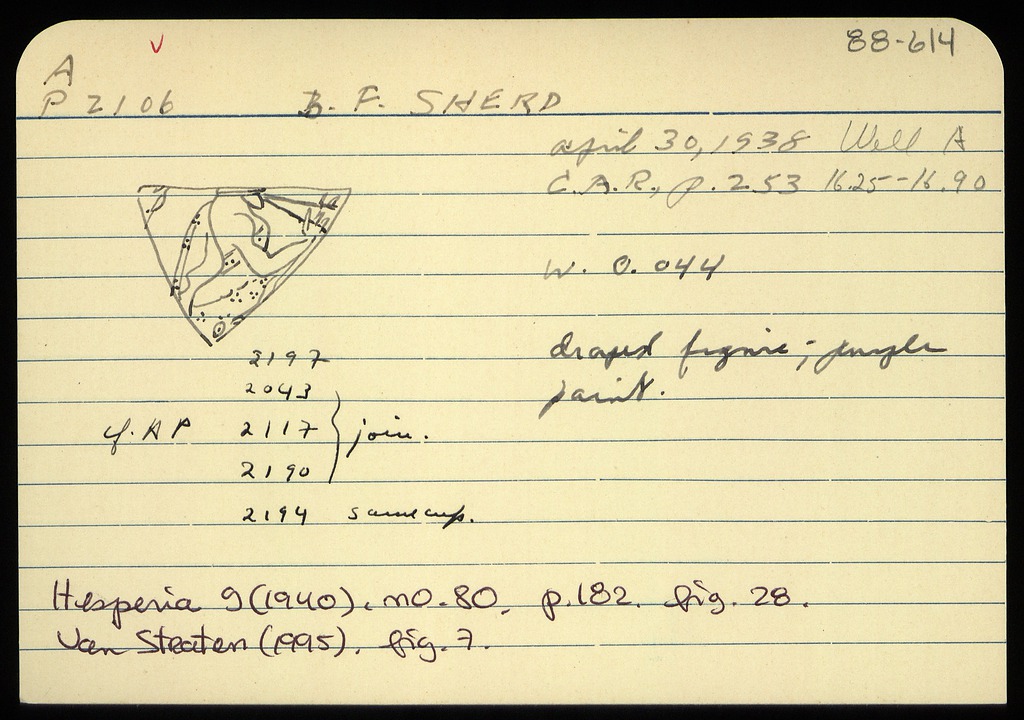 V
88-614
A
P 2106 B. F. SHERD
april 30, 1938 Well A
C.A.R., p. 253 16.25-16.90
W. 0.044
draped figure; purple
paint.
2197
2043
cf. AP 2117 } join.
2190
2194 same cup.
Hesperia 9 (1940). no. 80. p. 182. fig. 28.
Van Straten (1995). fig. 7.